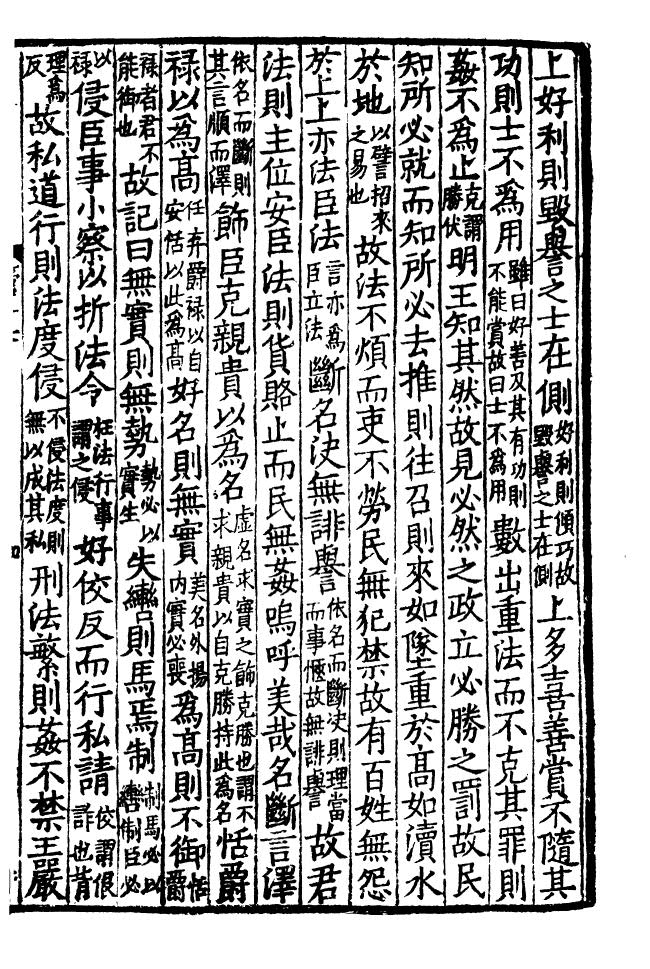 上好利則毀譽之士在側好利則傾巧故毀譽之士在側上多喜善賞不隨其
功則士不爲用雖曰好善及其有功則不能賞故曰士不爲用數出重法而不克其罪則
姦不爲止克謂勝伏明王知其然故見必然之政立必勝之罰故民
知所必就而知所必去推則往召則來如墜重於高如瀆水
於地以譬招來之易也故法不煩而吏不勞民無犯禁故有百姓無怨
於上上亦法臣法言亦爲臣立法斷名決無誹譽依名而斷決則理當而事愜故無誹譽故君
法則主位安臣法則貨賂止而民無姦嗚呼美哉名斷言澤
依名而斷則其言順而澤飾臣克親貴以爲名虛名求實之飾克勝也謂不求親貴以自克勝持此爲名恬爵
祿以爲高任弃爵祿以自安恬以此爲高好名則無實美名外揚內實必喪爲高則不御恬爵
祿者君不能御也故記曰無實則無勢勢必以實生失轡則馬焉制制馬必以轡制臣必
以祿侵臣事小察以折法令枉法行事謂之侵好佼反而行私請佼謂佷詐也背
理爲反故私道行則法度侵不侵法度則無以成其私刑法繁則姦不禁主嚴